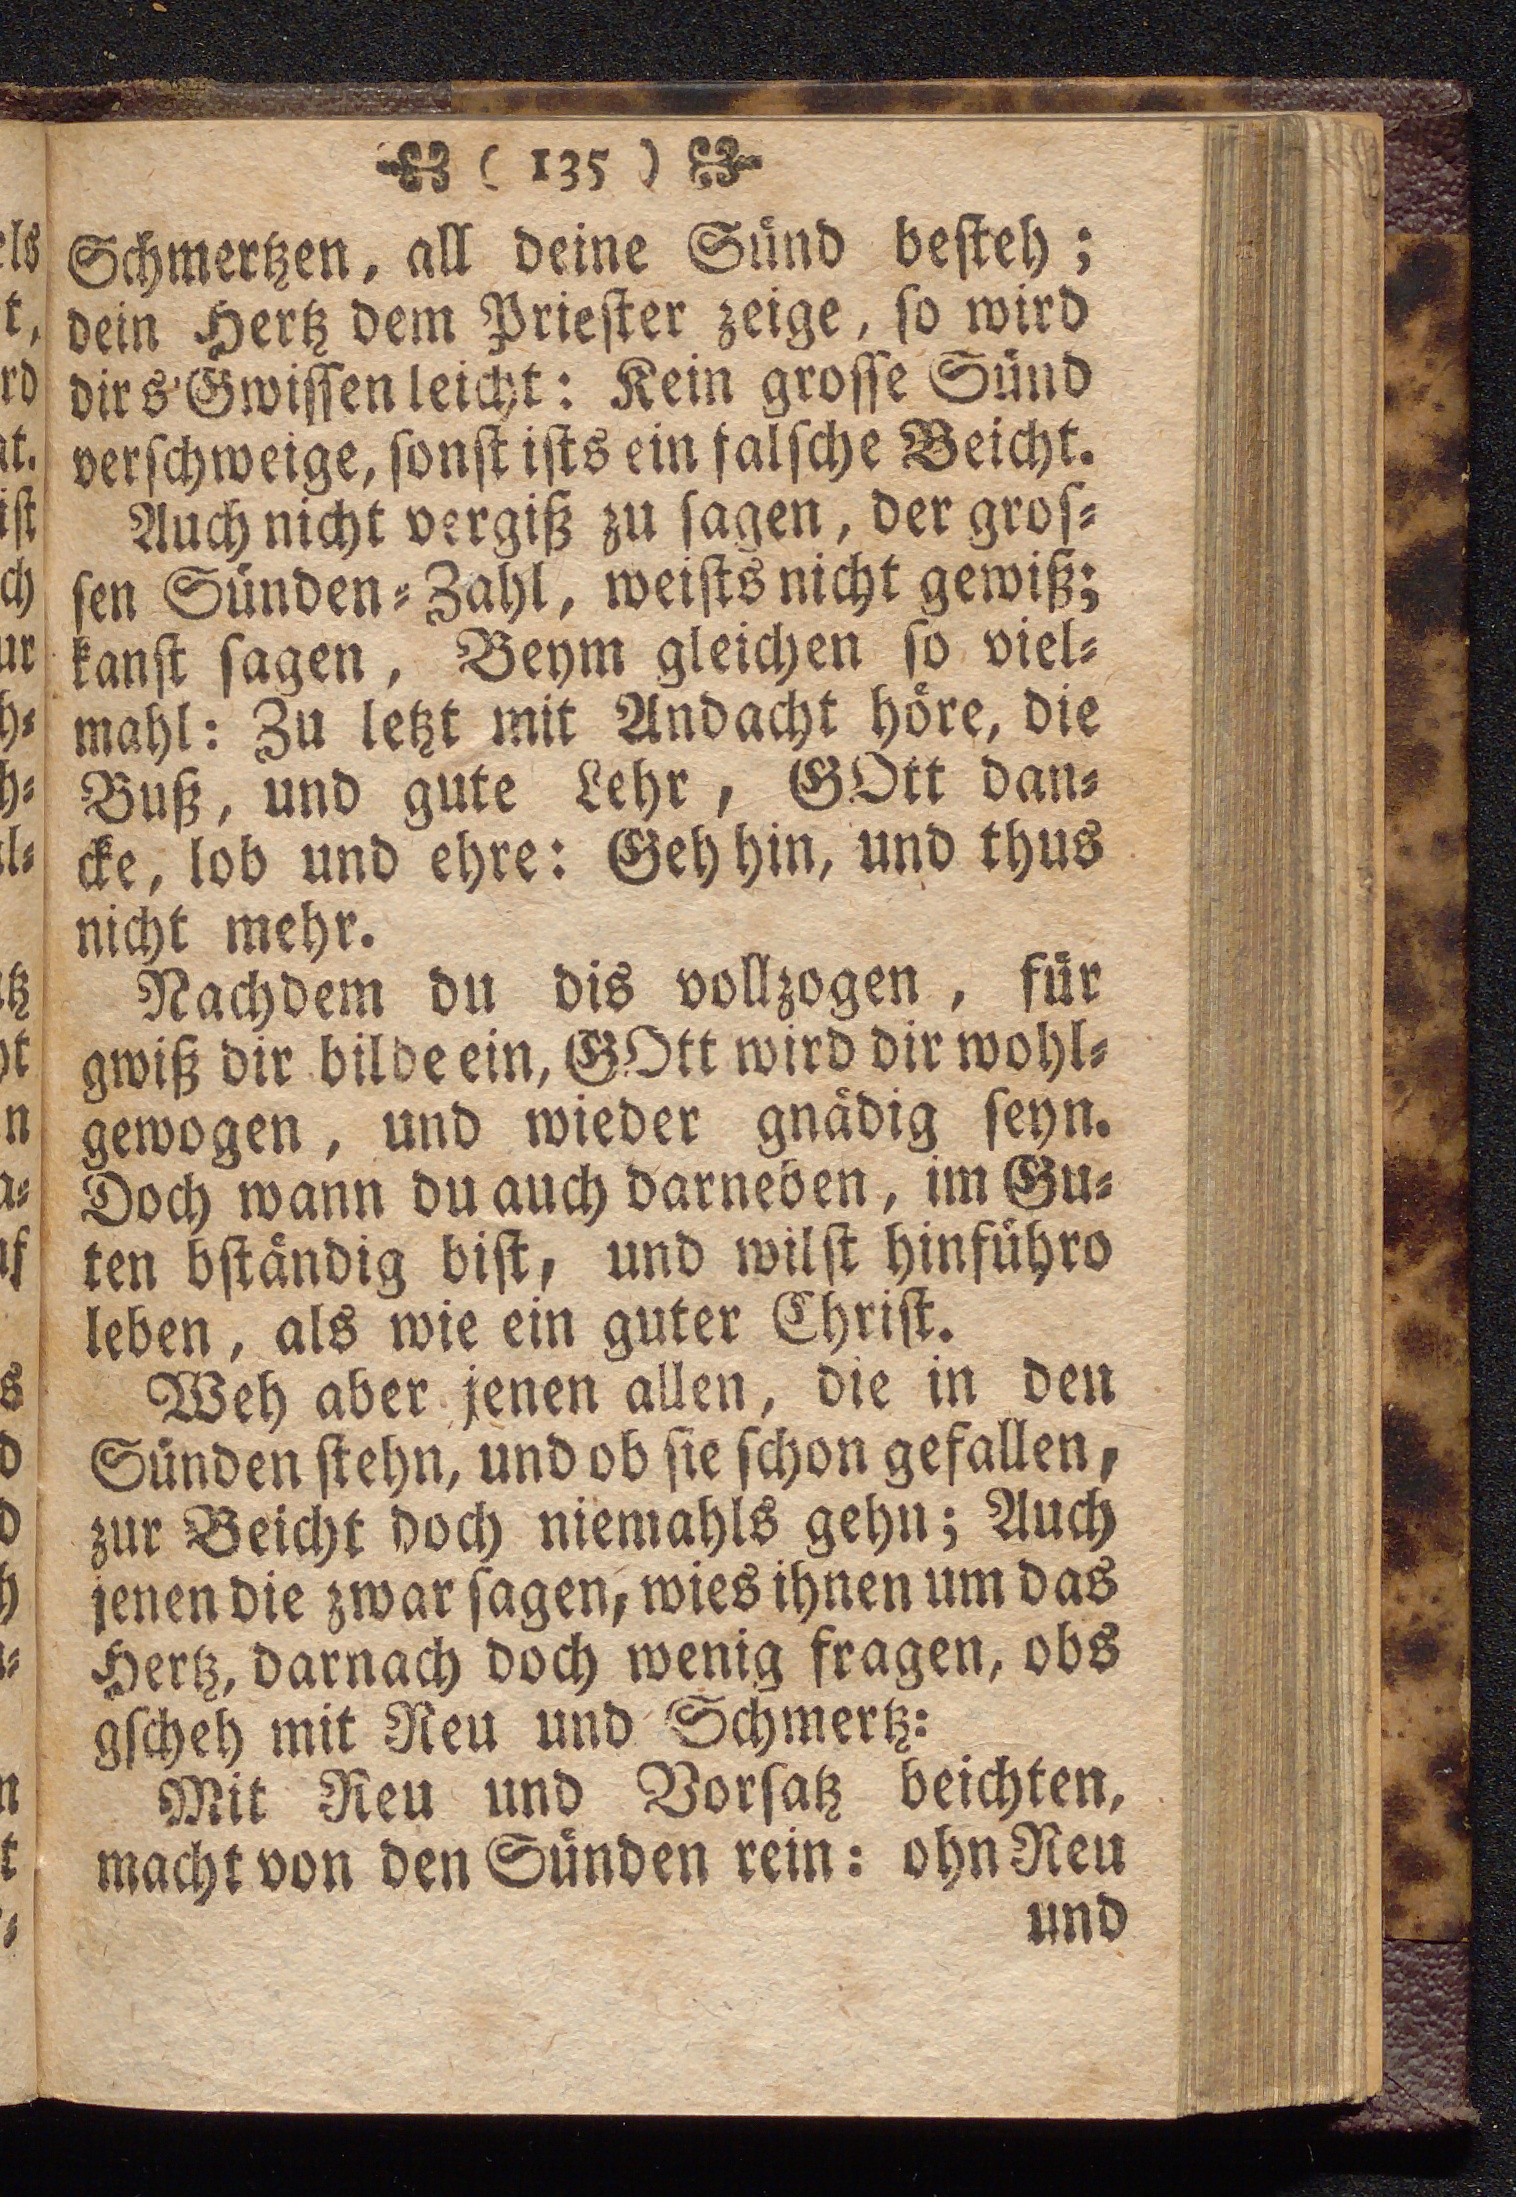 ( 135 )
Schmertzen, all deine Sünd besteh;
dein Hertz dem Priester zeige, so wird
dir s'Gwissen leicht: Kein grosse Sünd
verschweige, sonst ists ein falsche Beicht.
Auch nicht vergiß zu sagen, der gros-
sen Sünden-Zahl, weists nicht gewiß;
kanst sagen, Beym gleichen so viel-
mahl: Zu letzt mit Andacht höre, die
Buß, und gute Lehr, GOtt dan-
cke, lob und ehre: Geh hin, und thus
nicht mehr.
Nachdem du dis vollzogen, für
gwiß dir bilde ein, GOtt wird dir wohl-
gewogen, und wieder gnädig seyn.
Doch wann du auch darneben, im Gu-
ten bständig bist, und wilst hinführo
leben, als wie ein guter Christ.
Weh aber jenen allen, die in den
Sünden stehn, und ob sie schon gefallen,
zur Beicht doch niemahls gehn; Auch
jenen die zwar sagen, wies ihnen um das
Hertz, darnach doch wenig fragen, obs
gscheh mit Reu und Schmertz:
Mit Reu und Vorsatz beichten,
macht von den Sünden rein: ohn Reu
und